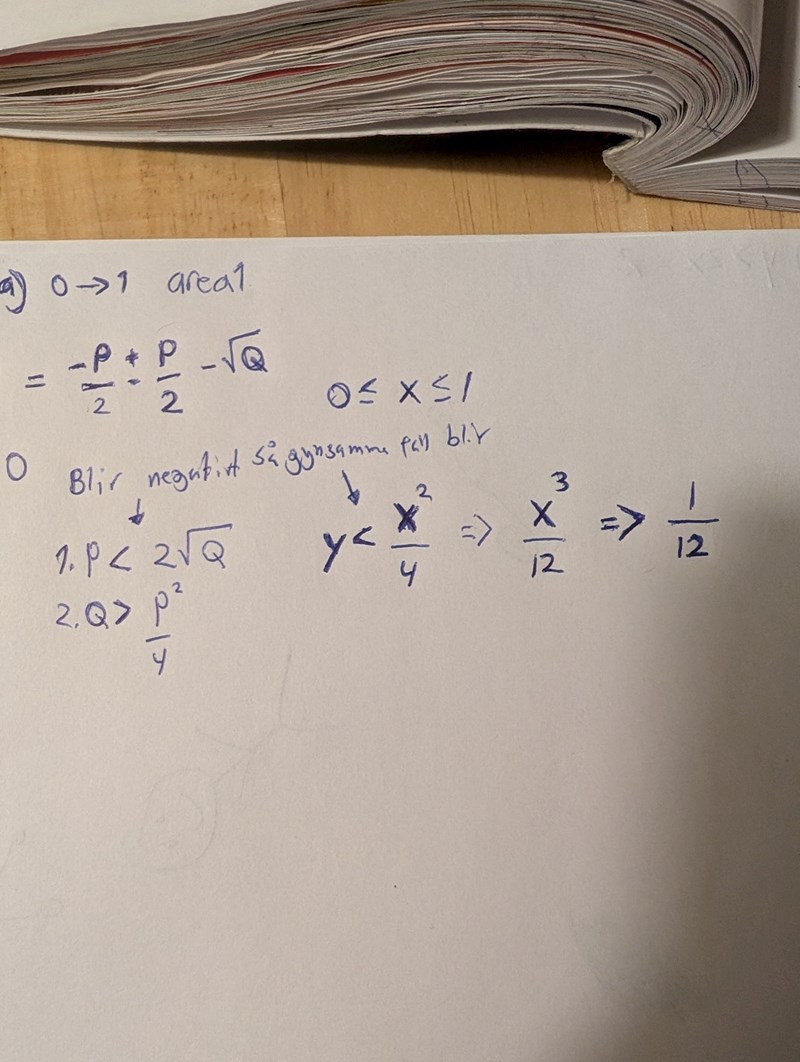 a) 0 → 1 area 1
= -P/2 ± P/2 - √Q
0 ≤ x ≤ 1
0 Blir negativt så gynsamma fall blir
1. P < 2√Q
y < x²/4 => x³/12 => 1/12
2. Q > P²/4